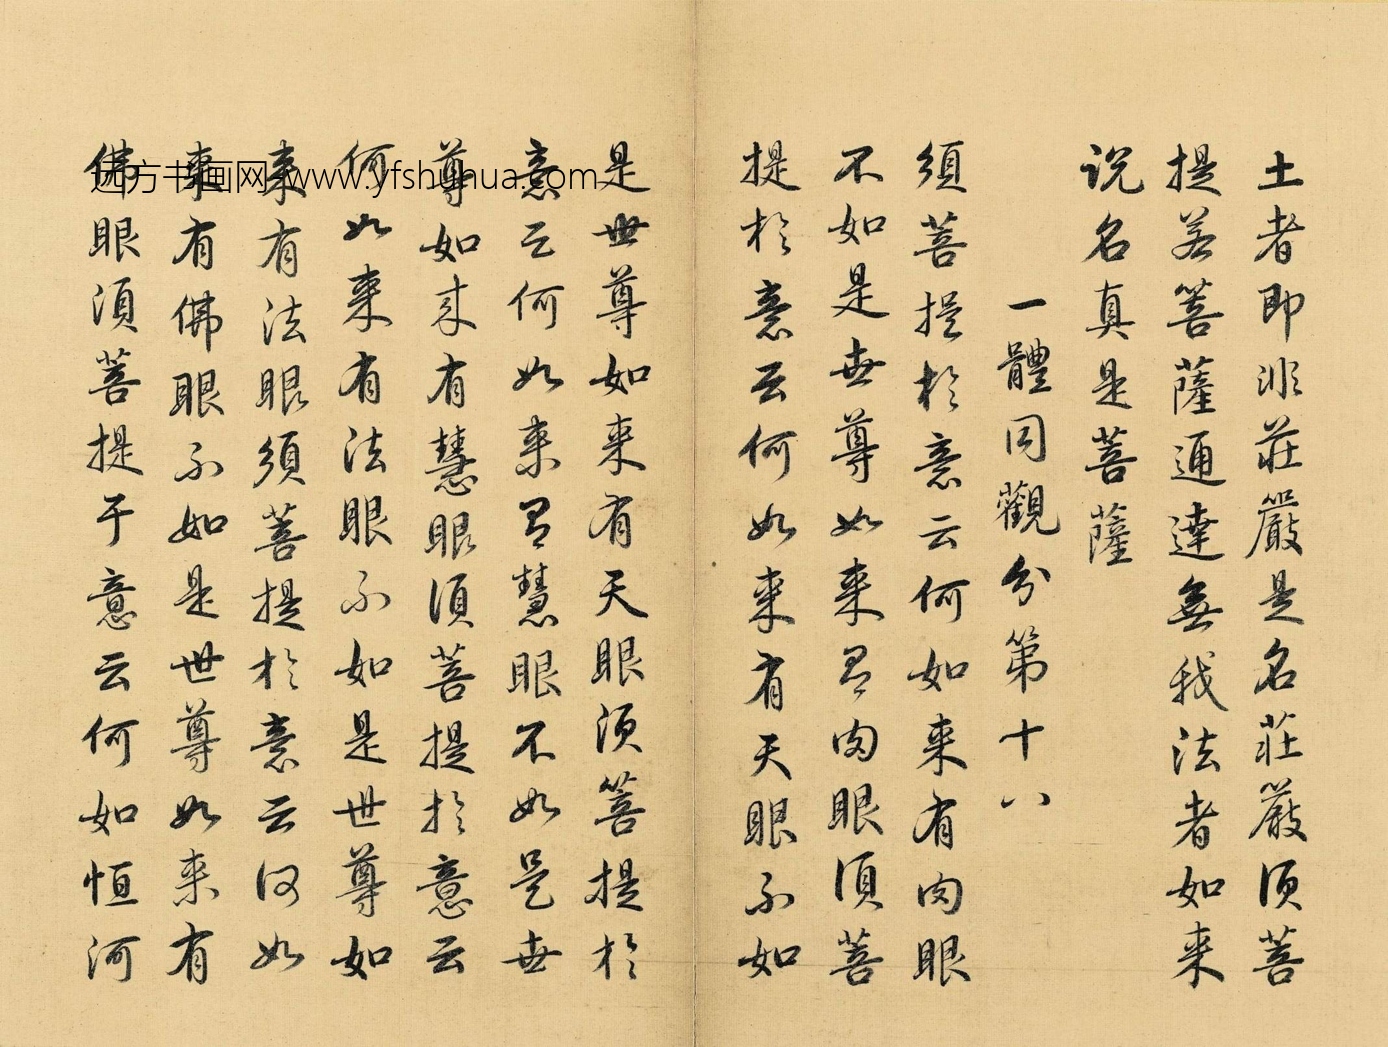 土者即非莊嚴是名莊嚴須菩
提若菩薩通達無我法者如来
说名真是菩薩
一體同觀分第十八
須菩提於意云何如来有肉眼
不如是世尊如来有肉眼須菩
提於意云何如来有天眼不如
是世尊如来有天眼須菩提於
意云何如来有慧眼不如是世
尊如来有慧眼須菩提於意云
何如来有法眼不如是世尊如
来有法眼須菩提於意云何如
来有佛眼不如是世尊如来有
佛眼須菩提于意云何如恒河
远方书画网 www.yfshuhua.com